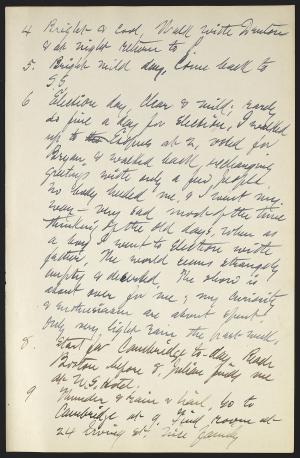 4 Bright & cool, Walk with Denton
& at night return to S.
5 Bright mild day, Come back to
S.S.
6 Election day, clear & mild; rarely
so fine a day for election, I walked
up to the Esopus at 2, voted for
Bryan, & walked back, exchanging
greetings with only a few people.
No body heeded me, & I went my
way — very sad most of the time
thinking of the old days, when as
a boy I went to election with
father. The world seems strangely
empty & deserted. The show is
about over for me; my curiosity
& enthusiasm are about spent
Only very light rain the past week,
8. Start for Cambridge to-day. Reach
Boston before 8, Julian finds me
at U.S. Hotel.
9 Thunder & rain & hail, Go to
Cambridge at 9. Find room at
24 Irving St, nice family